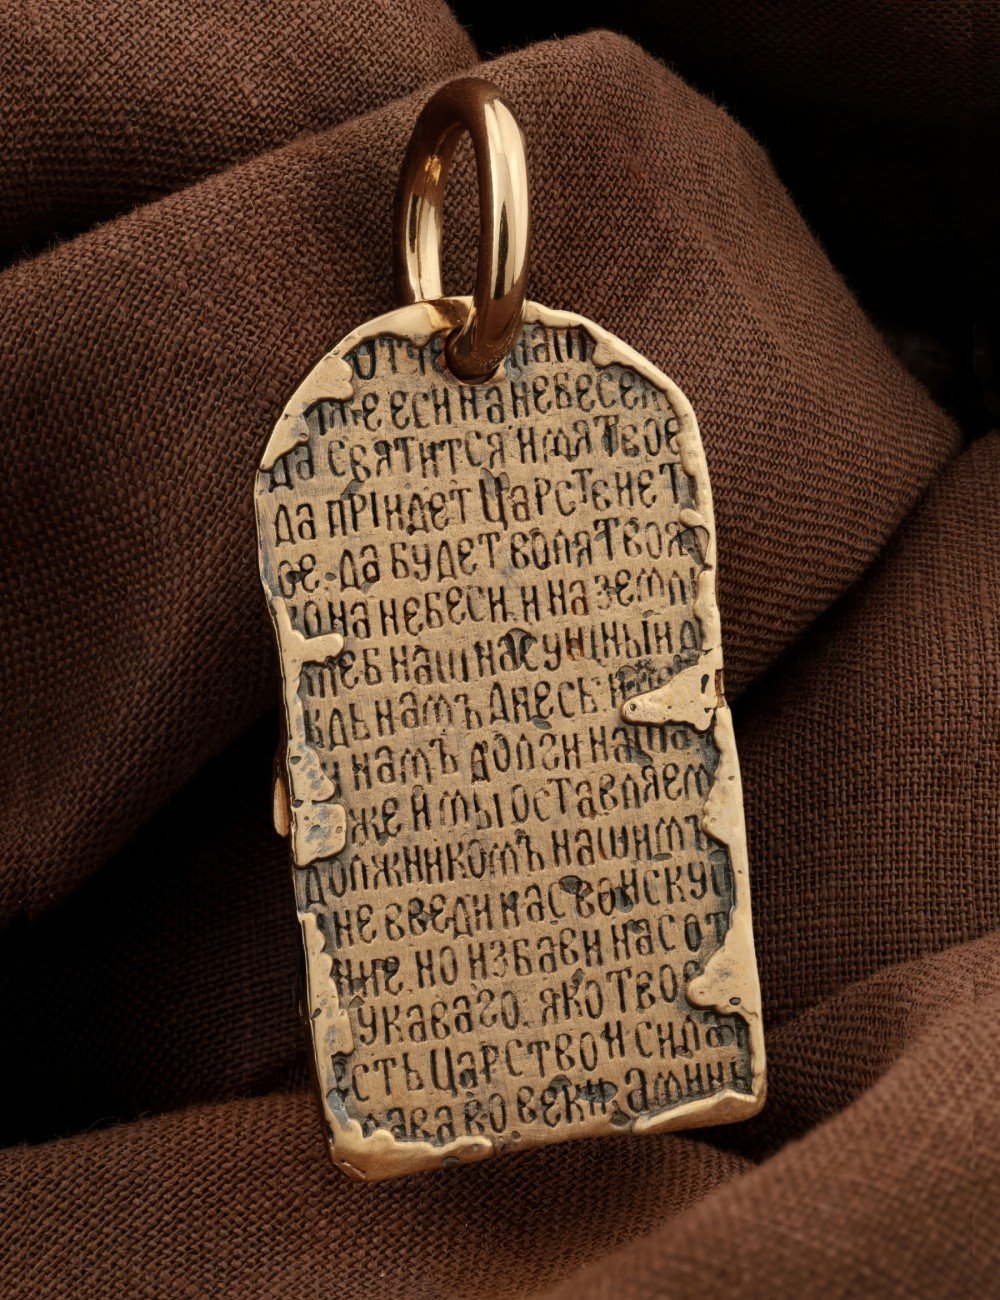 ОТЧЕ НАШ
ЖЕ ЕСИ НА НЕБЕСЕХ
ДА СВЯТИТСЯ ИМЯ ТВОЕ
ДА ПРIИДЕТ ЦАРСТЕНЕ Т
ОЕ. ДА БУДЕТ ВОЛЯ ТВОЯ
КО НА НЕБЕСИ. И НА ЗЕМЛИ
ЛЕБ НАШ НАСУЩНЫЙ Д
ЖДЬ НАМЪ ДНЕСЬ. И
И НАМЪ ДОЛГИ НАША
ЖЕ И МЫ ОСТАВЛЯЕМ
ДОЛЖНИКОМЪ НАШИМЪ
НЕ ВВЕДИ НАС ВО ИСКУС
НИЕ. НО ИЗБАВИ НАС ОТ
УКАВАГО. ЯКО ТВОЕ
ЕСТЬ ЦАРСТВО И СИЛА
ЛАВА ВО ВЕКИ. АМИНЬ